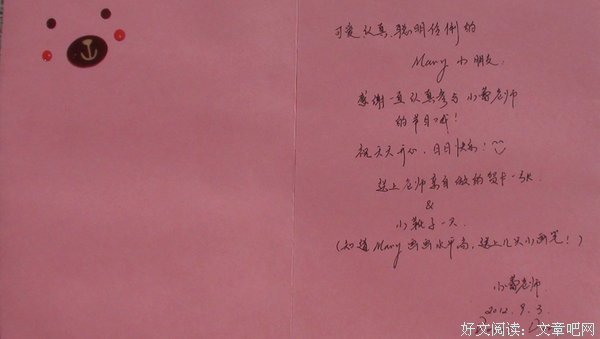 可爱认真、聪明伶俐的
Mary 小朋友.
感谢一直认真参与小蕾老师
的节目哦！
祝天天开心，日日快乐！
送上老师亲自做的贺卡一张
&
小靴子一只.
(知道Mary画画水平高，送上几只小画笔！)
小蕾老师.
2012.9.3
好文阅读：文章吧网